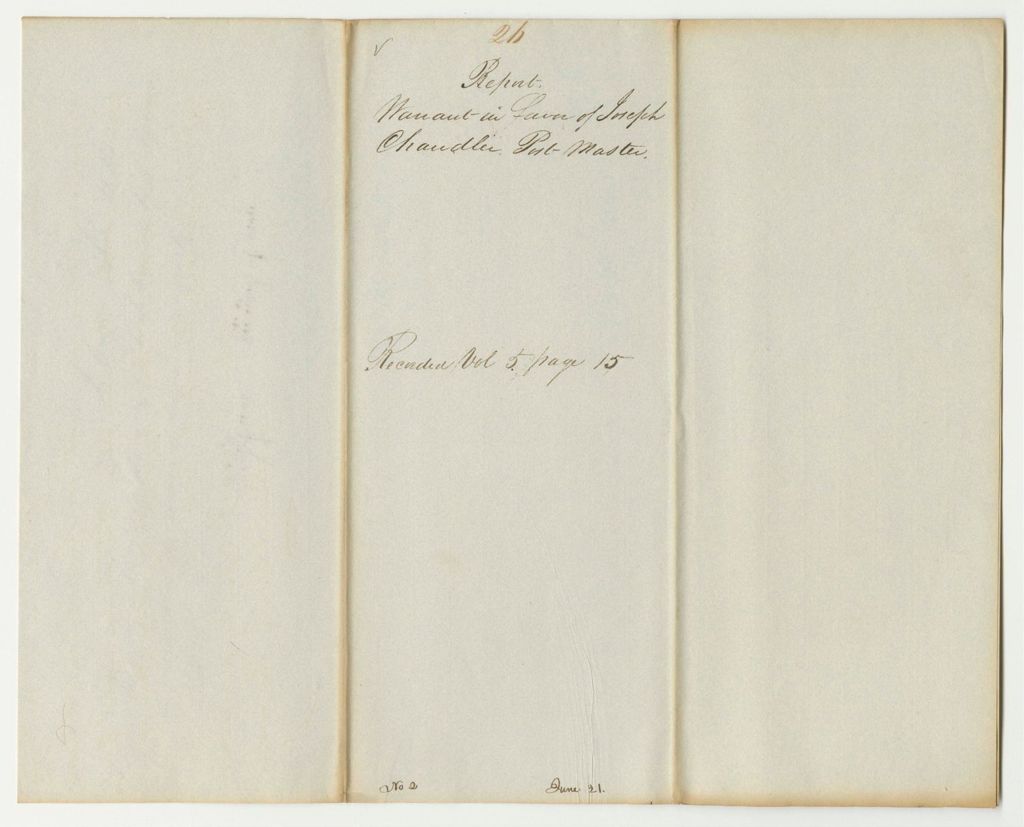 26
Report.
Warrant in favor of Joseph
Chandler. Post Master.
Recorded Vol 5. page 15
No 2 June 21.